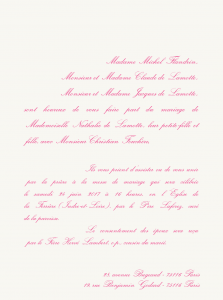 Madame Michel Flandrin,
Monsieur et Madame Claude de Lamotte,
Monsieur et Madame Jacques de Lamotte,
sont heureux de vous faire part du mariage de
Mademoiselle Nathalie de Lamotte, leur petite-fille et
fille, avec Monsieur Christian
Ils vous prient d'assister ou de vous unir
par la prière à la messe de mariage qui sera célébrée
le samedi 24 juin 2017 à 16 heures, en l'Eglise de
la Ferrière (Indre-et-Loire), par le Père
de la paroisse.
Le consentement des époux sera reçu
par le Père Henri Lambert, o.p., cousin du marié.
avenue 75116 Paris
rue Benjamin Godard - 75116 Paris